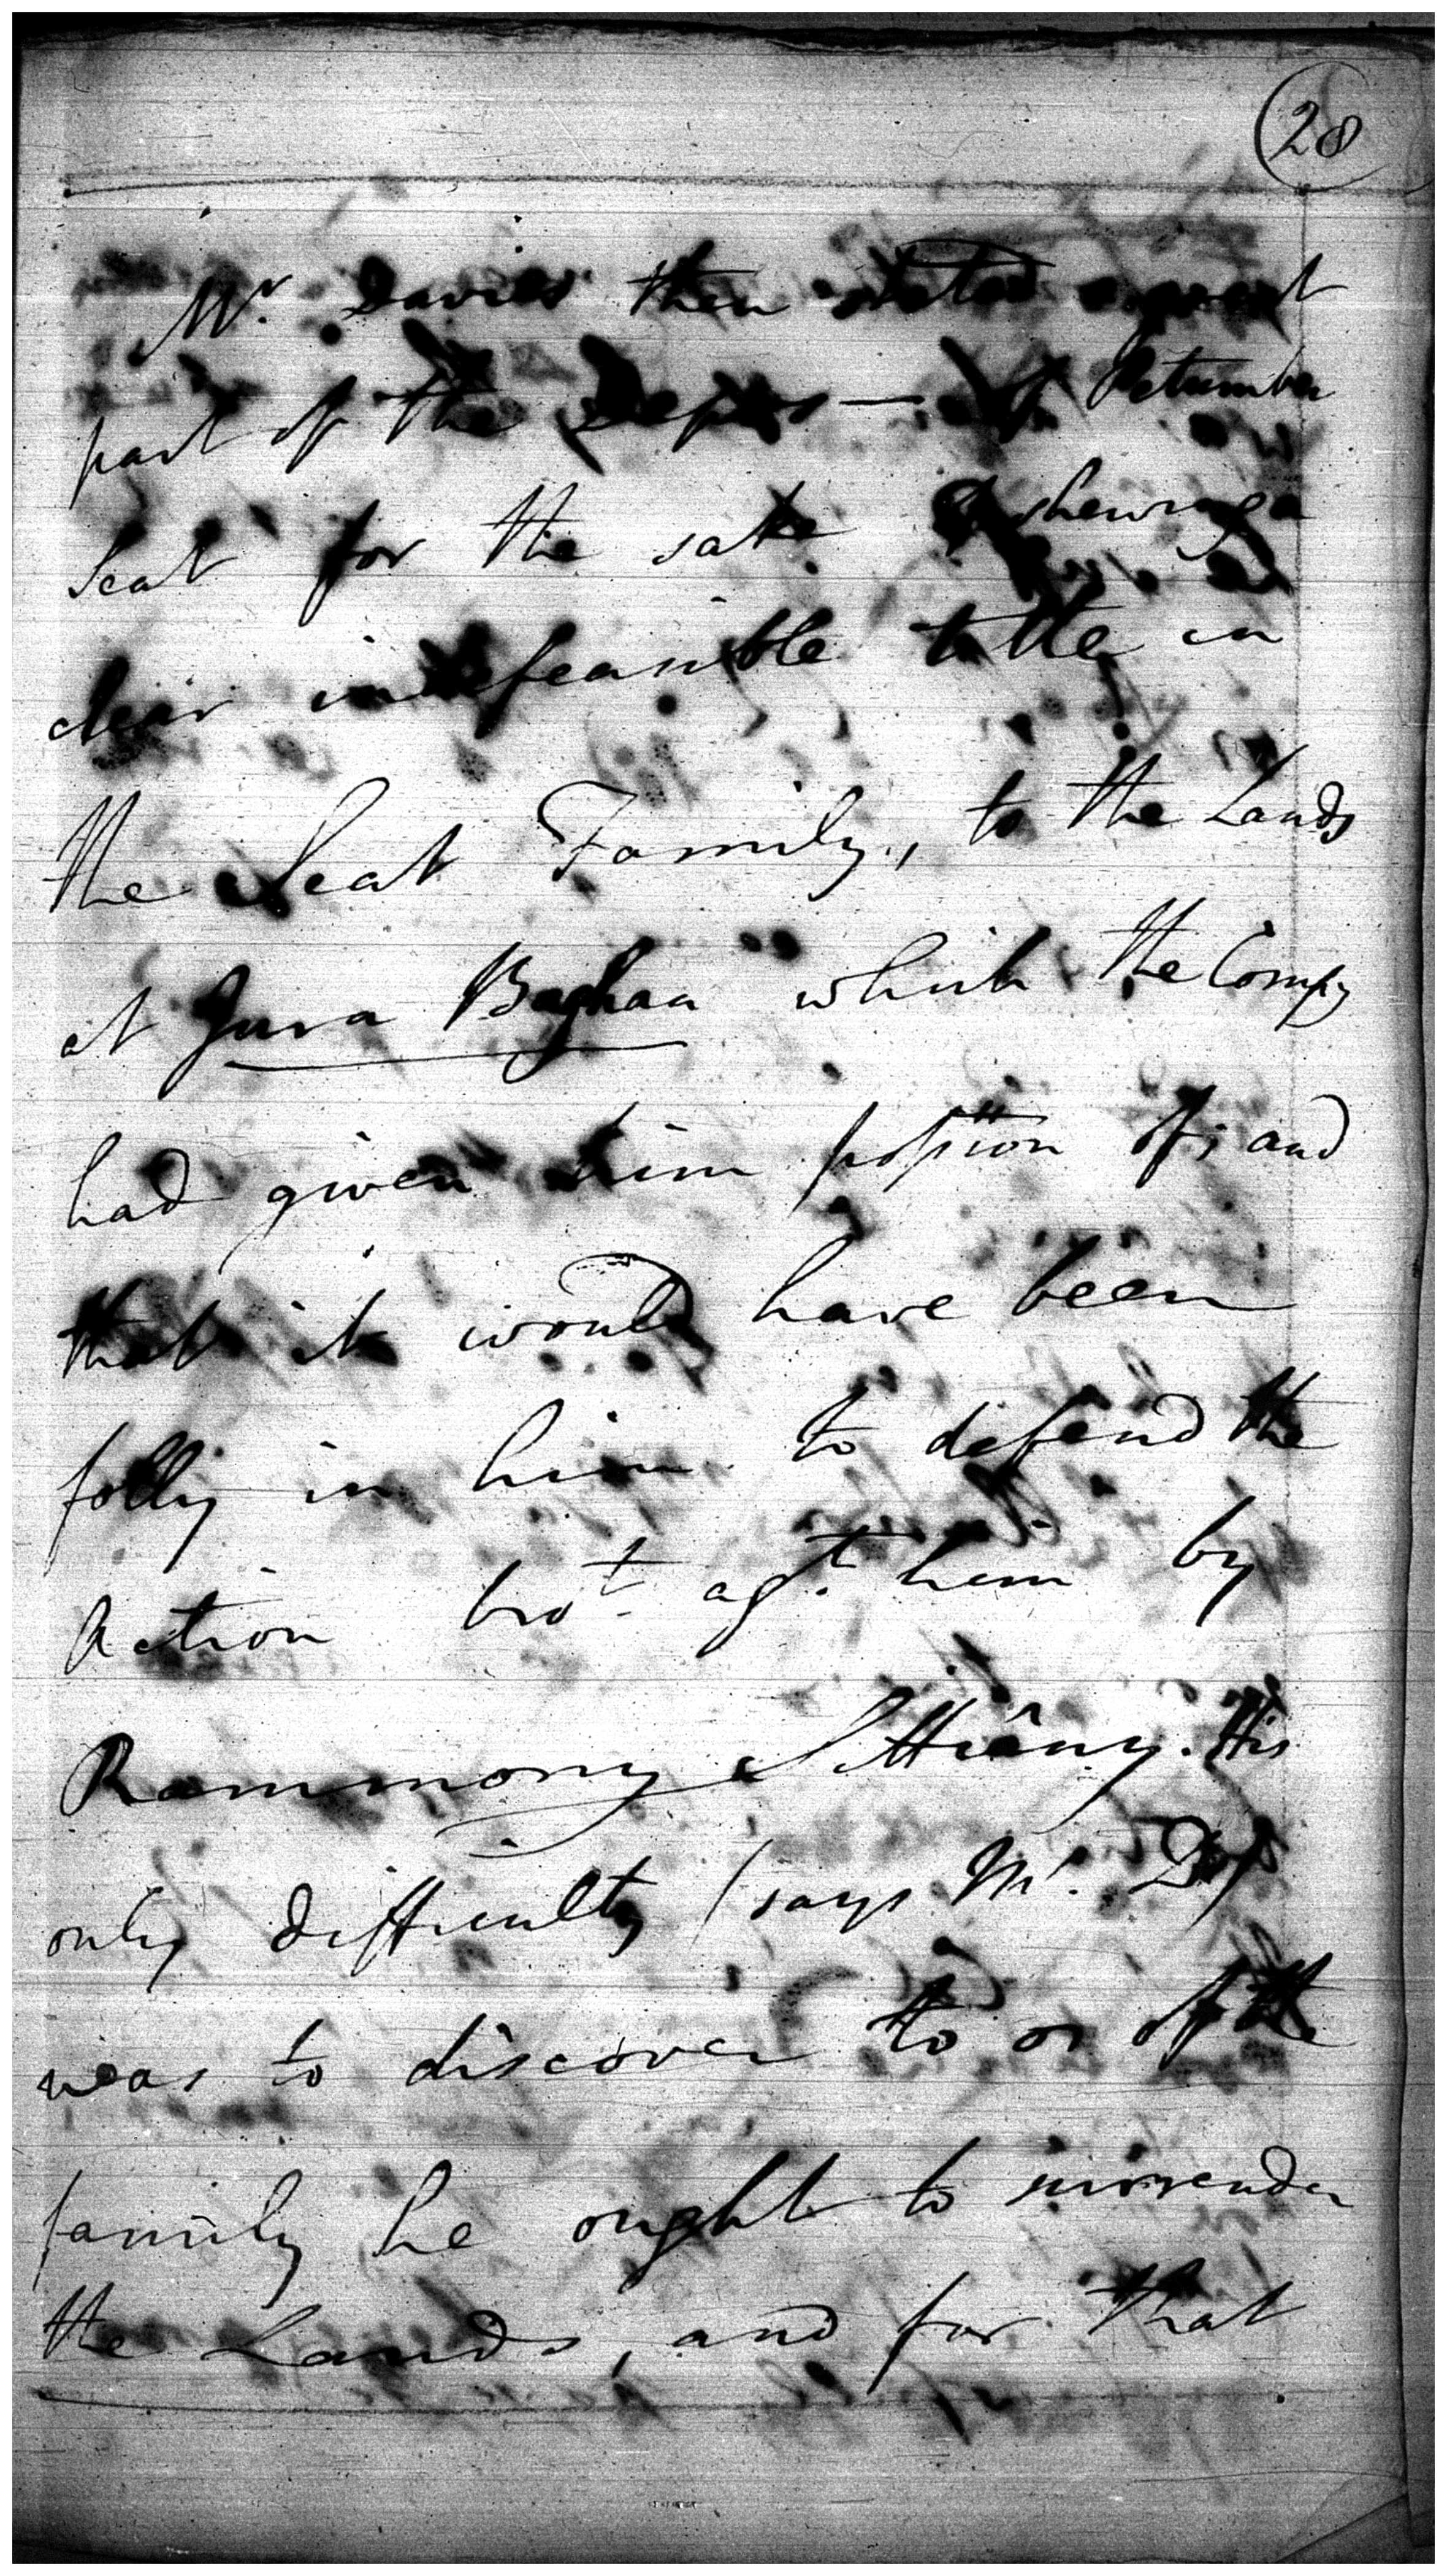 28
Mr. Davies then stated a great
part of the Depos— of Petumber
Seat for the sake of shewing a
clear indefeasible tittle in
the Seat Family, to the Lands
at Jura Baghaa which the Compy
had given him possion of, and
that it would have been
folly in him to defend the
Action brot. agt. him by
Rammony Sittiâny. His
only difficulty (says Mr. D)
was to discover to or of the
family he ought to surrender
the Lands, and for that